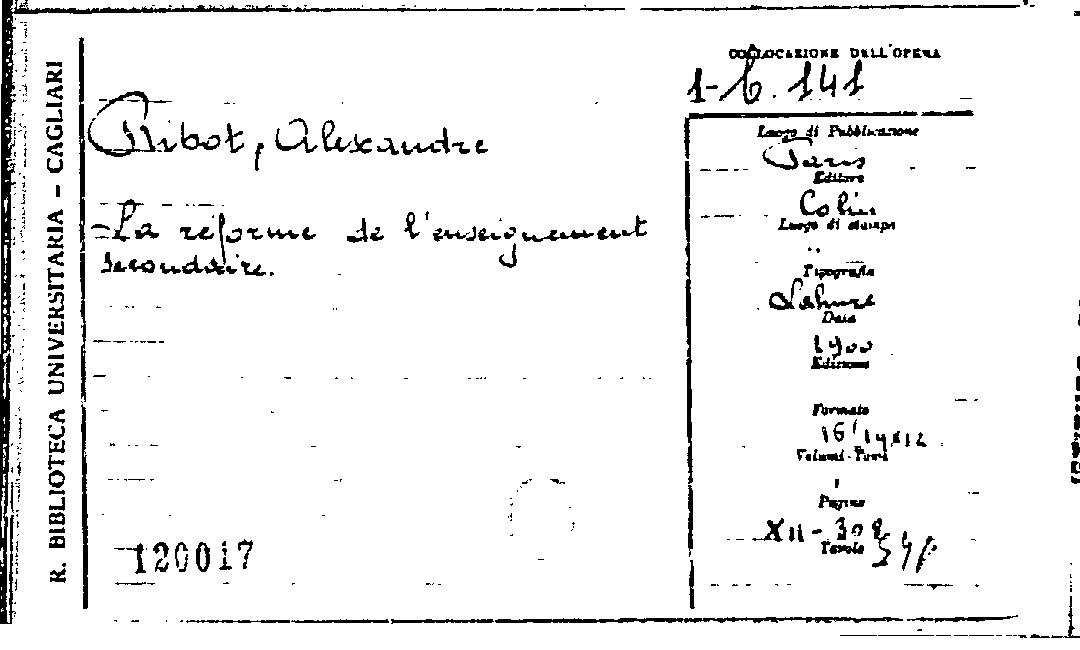 R. BIBLIOTECA UNIVERSITARIA - CAGLIARI
COLLOCAZIONE DELL'OPERA
1-6.141
Ribot, Alexandre
La réforme de l'enseignement
secondaire.
120017
Luogo di Pubblicazione
Paris
Editore
Colin
Luogo di stampa
"
Tipografia
Lahure
Data
1900
Edizione
Formato
16° 19x12
Volumi-Tomi
1
Pagine
XII - 308
Tavole